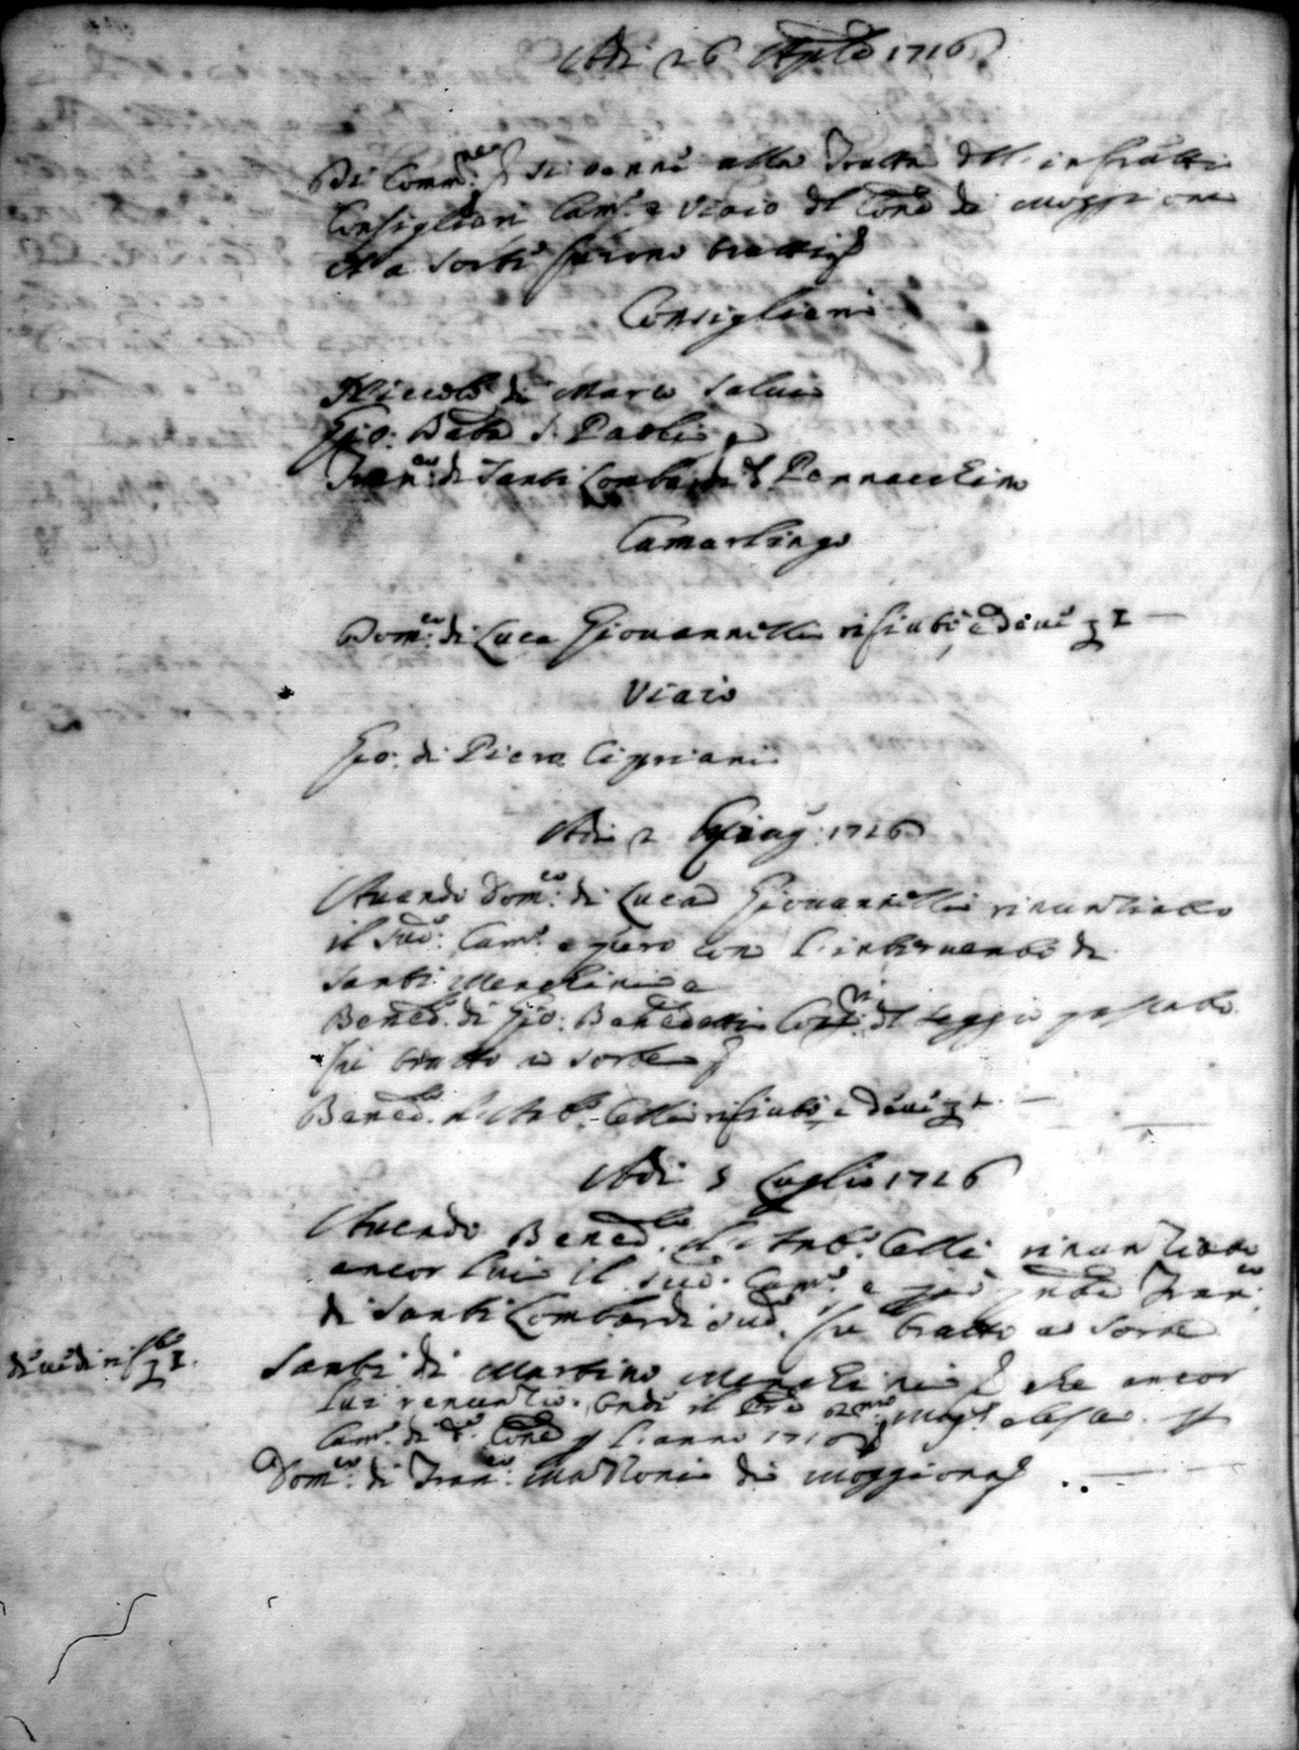 Adi 26 Aprile 1716
Di Comm.ne si venne alla Tratta dell' infratti
Consiglieri Cam.o e Viaio del Com.e di Moggiona
et a sorte furono tratti
Consiglieri
Niccolò di Marco Salui
Gio: Batta di Paoli
Fran.co di Santi Lombardi d. Pennacchino
Camarlingo
Dom.co di Luca Giouannelli rifiutò, e deue
Viaio
Gio: di Piero Cipriani
Adi 2 Giug: 1716
Auendo Dom.co di Luca Giouannelli rinuntiato
il sud.o Cam.o e però con l'interuento di
Santi Menchini e
Bened.o di Gio: Benedetti del seggio passato
fu tratto a sorte
Bened.o d'Ant.o Celli rifiutò e deue
Adi 5 Luglio 1716
Auendo Bened.o d'Ant.o Celli rinuntiato
ancor lui il sud.o Cam.o e Fran.co
di Santi Lombardi sud.o fu tratto a sorte
Santi di Martino Menchini che ancor
lui renuntiò. Onde il
Cam.o di d.o Com.e p l'anno 1716
Dom.co di Fran.co di Moggiona
deue di rif.to